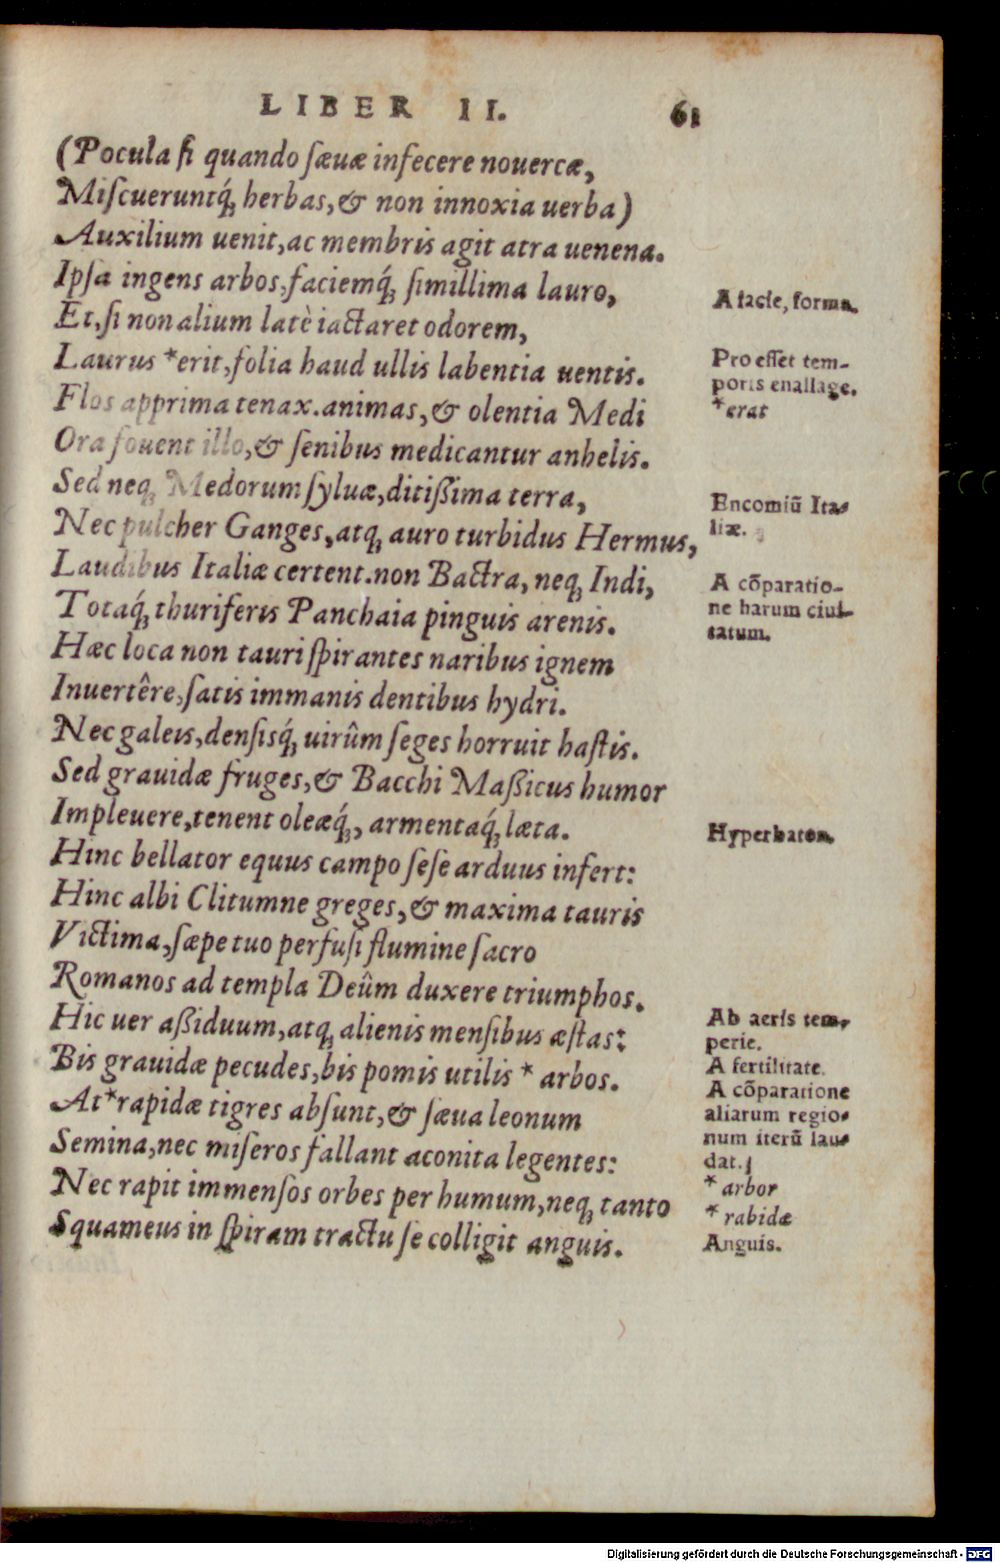 LIBER II. 61
(Pocula ſi quando ſæuæ infecere nouercæ,
Miſcueruntq́; herbas, & non innoxia uerba)
Auxilium uenit, ac membris agit atra uenena.
Ipſa ingens arbos, faciemq́; ſimillima lauro,
A facie, forma.
Et, ſi non alium latè iactaret odorem,
Laurus *erit, folia haud ullis labentia uentis.
Pro eſſet tem-
poris enallage.
*erat
Flos apprima tenax. animas, & olentia Medi
Ora fouent illo, & ſenibus medicantur anhelis.
Sed neq; Medorum ſyluæ, ditißima terra,
Encomiũ Ita-
liæ.
Nec pulcher Ganges, atq; auro turbidus Hermus,
Laudibus Italiæ certent. non Bactra, neq; Indi,
A cõparatio-
ne harum ciui-
tatum.
Totaq́; thuriferis Panchaia pinguis arenis.
Hæc loca non tauri ſpirantes naribus ignem
Inuertêre, ſatis immanis dentibus hydri.
Nec galeis, denſisq́; uirûm ſeges horruit haſtis.
Sed grauidæ fruges, & Bacchi Maßicus humor
Impleuere, tenent oleæq́;, armentaq́; læta.
Hyperbaton.
Hinc bellator equus campo ſeſe arduus infert:
Hinc albi Clitumne greges, & maxima tauris
Victima, ſæpe tuo perfuſi flumine ſacro
Romanos ad templa Deûm duxere triumphos.
Hic uer aßiduum, atq; alienis menſibus æſtas:
Ab aeris tem-
perie.
Bis grauidæ pecudes, bis pomis utilis * arbos.
A fertilitate.
At *rapidæ tigres abſunt, & ſæua leonum
A cõparatione
aliarum regio-
num iterũ lau-
dat.
Semina, nec miſeros fallant aconita legentes:
Nec rapit immenſos orbes per humum, neq; tanto
* arbor
* rabidæ
Squameus in ſpiram tractu ſe colligit anguis.
Anguis.
Digitalisierung gefördert durch die Deutsche Forschungsgemeinschaft - DFG